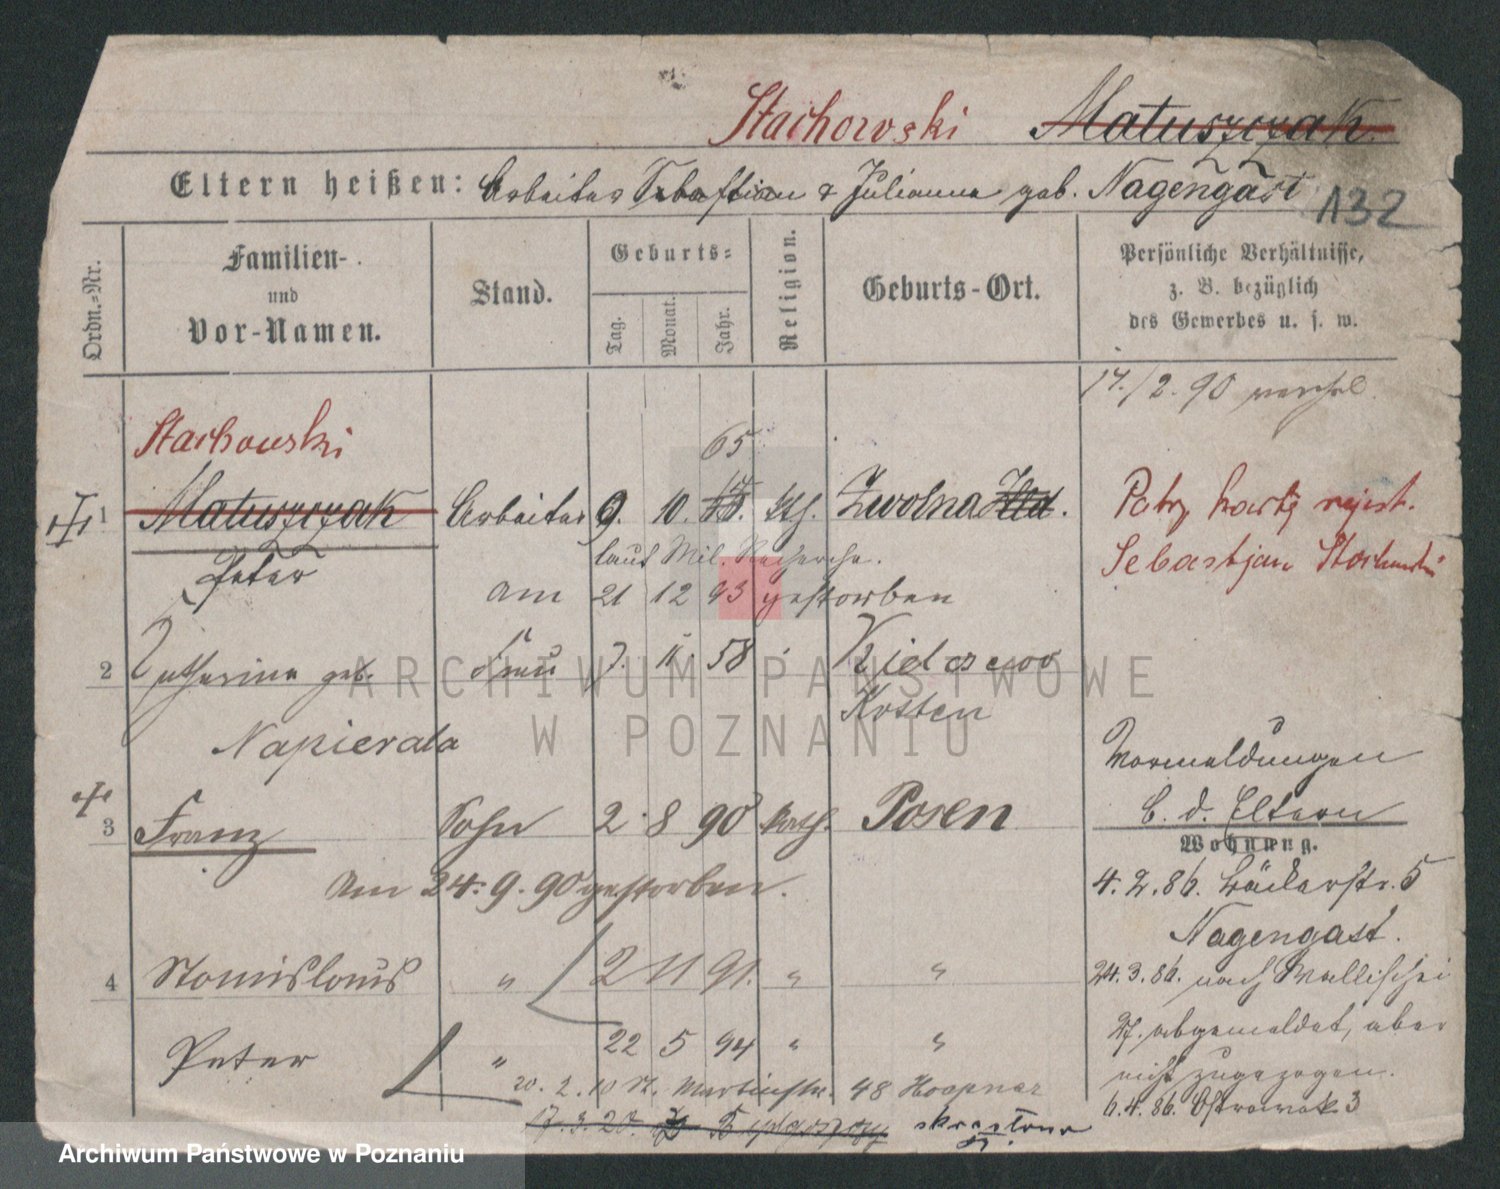 Stachowski Matuszczak.
Eltern heißen: Arbeiter Sebastian & Julianna geb. Nagengast 132
Ordn.-Nr.
Familien-
und
Vor-Namen.
Stand.
Geburts-
Tag.
Monat.
Jahr.
Religion.
Geburts-Ort.
Persönliche Verhältnisse,
z. B. bezüglich
des Gewerbes u. s. w.
14./2. 90
Stachowski
65
1 Matuszczak Arbeiter 9. 10. kth. Zwolna Hld.
Patrz kartę rejest.
Sebastjan Stachowski
laut Mil. Recherche.
Peter
am 21 12 93 gestorben
2 Catharina geb. Frau 7. 11. 58
Kosten
Napierala
Vormeldungen
b. d. Eltern
3 Franz Sohn 2. 8 90 kath. Posen
Wohnung.
am 24. 9. 90 gestorben.
4. 2. 86. Bäckerstr. 5
Nagengast.
4 Stanislaus " 2 11 91. " "
24. 3. 86. nach Wallischei
27. abgemeldet, aber
Peter " 22 5 94 " "
nicht zugezogen.
20. 2. 10 St. Martinstr. 48 Hoopner
6. 4. 86. Ostrowek 3
17. 3. 20. z Bydgoszczy skreślono
ARCHIWUM PAŃSTWOWE
W POZNANIU
Archiwum Państwowe w Poznaniu